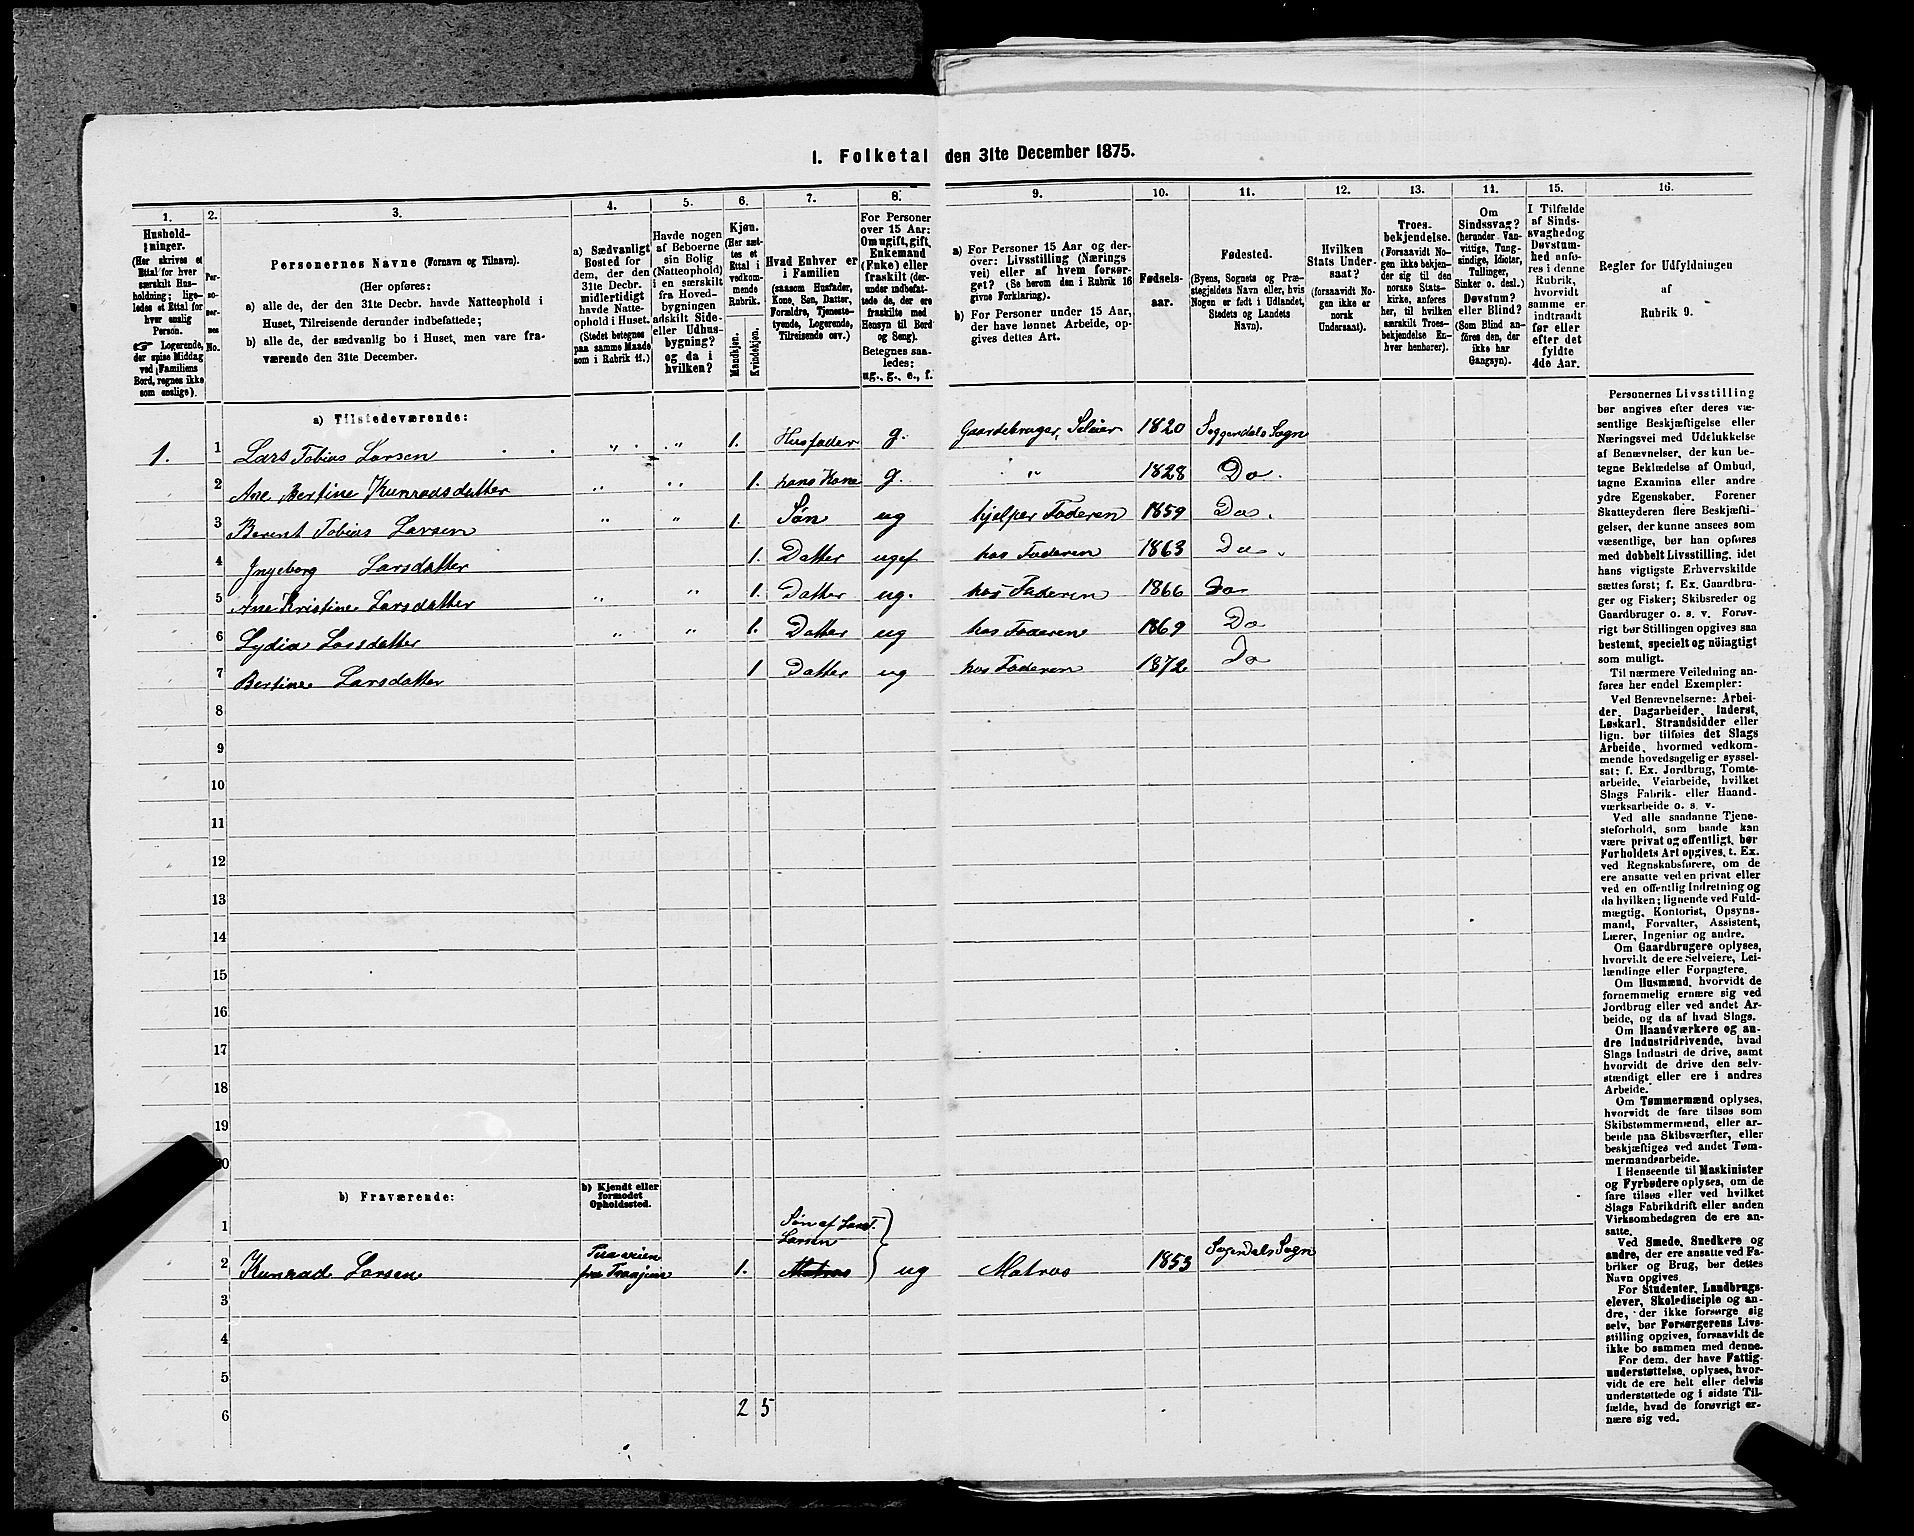 1. Folketal den 31te December 1875.
1. 2. 3. 4. 5. 6. 7. 8. 9. 10. 11. 12. 13. 14. 15. 16.
Hushold-
ninger.
(Her skrives et
Ettal for hver
særskilt Hus-
holdning; lige-
ledes et Ettal for
hver enslig
Person.
☞ Logerende,
der spise Middag
ved Familiens
Bord, regnes ikke
som enslige).
Per-
so-
ner-
nes
No.
Personernes Navne (Fornavn og Tilnavn).
(Her opføres:
a) alle de, der den 31te Decbr. havde Natteophold i
Huset, Tilreisende derunder indbefattede;
b) alle de, der sædvanlig bo i Huset, men vare fra-
værende den 31te December.
a) Sædvanligt
Bosted for
dem, der den
31te Decbr.
midlertidigt
havde Natte-
ophold i Huset.
(Stedet betegnes
paa samme Maade
som i Rubrik 11.)
Havde nogen
af Beboerne
sin Bolig
(Natteophold)
i en særskilt
fra Hoved-
bygningen
adskilt Side-
eller Udhus-
bygning?
og da i
hvilken?
Kjøn.
(Her sæt-
tes et
Ettal i
vedkom-
mende
Rubrik.
Mandkjøn.
Kvindekjøn.
Hvad Enhver er
i Familien
(saasom Husfader,
Kone, Søn, Datter,
Forældre, Tjeneste-
tyende, Logerende,
Tilreisende osv.)
For Personer
over 15 Aar:
Om ugift, gift,
Enkemand
(Enke) eller
fraskilt (der-
under indbefat-
tede de, der ere
fraskilte med
Hensyn til Bord
og Seng).
Betegnes saa-
ledes:
ug., g., e., f.
a) For Personer 15 Aar og der-
over: Livsstilling (Nærings
vei) eller af hvem forsør-
get? (Se herom den i Rubrik 16
givne Forklaring).
b) For Personer under 15 Aar,
der have lønnet Arbeide, op-
gives dettes Art.
Fødsels-
aar.
Fødested.
(Byens, Sognets og Præ-
stegjeldets Navn eller, hvis
Nogen er født i Udlandet,
Stedets og Landets
Navn).
Hvilken
Stats Under-
saat?
(forsaavidt No-
gen ikke er
norsk
Undersaat).
Troes-
bekjendelse.
(Forsaavidt No-
gen ikke bekjen-
der sig til den
norske Stats-
kirke, anføres
her, til hvilken
særskilt Troes-
bekjendelse En-
hver henhører).
Om
Sindssvag?
(herunder Van-
vittige, Tung-
sindige, Idioter,
Tullinger,
Sinker o. desl.)
Døvstum?
eller Blind?
(Som Blind an-
føres den, der
ikke har
Gangsyn).
I Tilfælde
af Sinds-
svaghed og
Døvstum-
hed anfø-
res i denne
Rubrik,
hvorvidt
samme er
indtraadt
før eller
efter det
fyldte
4de Aar.
Regler for Udfyldningen
af
Rubrik 9.
a) Tilstedeværende:
1. 1 Lars Tobias Larsen „ „ 1. Husfader g. Gaardebruger, Seleier 1820 Soggendals Sogn
2 Ane Bertine Kunradsdatter „ „ 1. hans Kone g. „ 1828 Do.
3 Berent Tobias Larsen „ „ 1. Søn ug hjelper Faderen 1859 Do.
4 Ingeborg Larsdatter 1. Datter ugef hos Faderen 1863 Do.
5 Ane Kristine Larsdatter „ „ 1. Datter ug. hos Faderen 1866 Do
6 Lydia Larsdatter „ „ 1. Datter ug hos Faderen 1869 Do
7 Bertine Larsdatter 1 Datter ug hos Faderen 1872 Do
8
9
10
11
12
13
14
15
16
17
18
19
20
b) Fraværende:
b) Kjendt eller
formodet
Opholdssted.
1 Søn af Lars T.
Larsen
2 Kunrad Larsen 1. Matros ug Matros 1853 Sogendals Sogn
3
4
5
6 2 5
Personernes Livsstilling
bør angives efter deres væ-
sentlige Beskjæftigelse eller
Næringsvei med Udelukkelse
af Benævnelser, der kun be-
tegne Beklædelse af Ombud,
tagne Examina eller andre
ydre Egenskaber. Forener
Skatteyderen flere Beskjæfti-
gelser, der kunne ansees som
væsentlige, bør han opføres
med dobbelt Livsstilling, idet
hans vigtigste Erhvervskilde
sættes først; f. Ex. Gaardbru-
ger og Fisker; Skibsreder og
Gaardbruger o. s. v. Forøv-
rigt bør Stillingen opgives saa
bestemt, specielt og nöiagtigt
som muligt.
Til nærmere Veiledning an-
føres her endel Exempler:
Ved Benævnelserne: Arbei-
der, Dagarbeider, Inderst,
Løskarl, Strandsidder eller
lign. bør tilføies det Slags
Arbeide, hvormed vedkom-
mende hovedsagelig er syssel-
sat; f. Ex. Jordbrug, Tomte-
arbeide, Veiarbeide, hvilket
Slags Fabrik- eller Haand-
værksarbeide o. s. v.
Ved alle saadanne Tjene-
steforhold, som baade kan
være privat og offentligt, bør
Forholdets Art opgives, t. Ex.
ved Regnskabsførere, om de
ere ansatte ved en privat eller
ved en offentlig Indretning og
da hvilken; lignende ved Fuld-
mægtig, Kontorist, Opsyns-
mand, Forvalter, Assistent,
Lærer, Ingeniør og andre.
Om Gaardbrugere oplyses,
hvorvidt de ere Selveiere, Lei-
lændinge eller Forpagtere.
Om Husmænd, hvorvidt de
fornemmelig ernære sig ved
Jordbrug eller ved andet Ar-
beide, og da af hvad Slags.
Om Haandværkere og an-
dre Industridrivende, hvad
Slags Industri de drive, samt
hvorvidt de drive den selv-
stændigt eller ere i andres
Arbeide.
Om Tømmermænd oplyses,
hvorvidt de fare tilsøs som
Skibstømmermænd, eller ar-
beide paa Skibsværfter, eller
beskjæftiges ved andet Tøm-
mermandsarbeide.
I Henseende til Maskinister
og Fyrbødere oplyses, om de
fare tilsøs eller ved hvilket
Slags Fabrikdrift eller anden
Virksomhedsgren de ere an-
satte.
Ved Smede, Snedkere og
andre, der ere ansatte ved Fa-
briker og Brug, bør dettes
Navn opgives.
For Studenter, Landbrugs-
elever, Skoledisciple og an-
dre, der ikke forsørge sig
selv, bør Forsørgerens Livs-
stilling opgives, forsaavidt de
ikke bo sammen med denne.
For dem, der have Fattig-
understøttelse, oplyses, hvor-
vidt de ere helt eller delvis
understøttede og i sidste Til-
fælde, hvad de forøvrigt er-
nære sig ved.